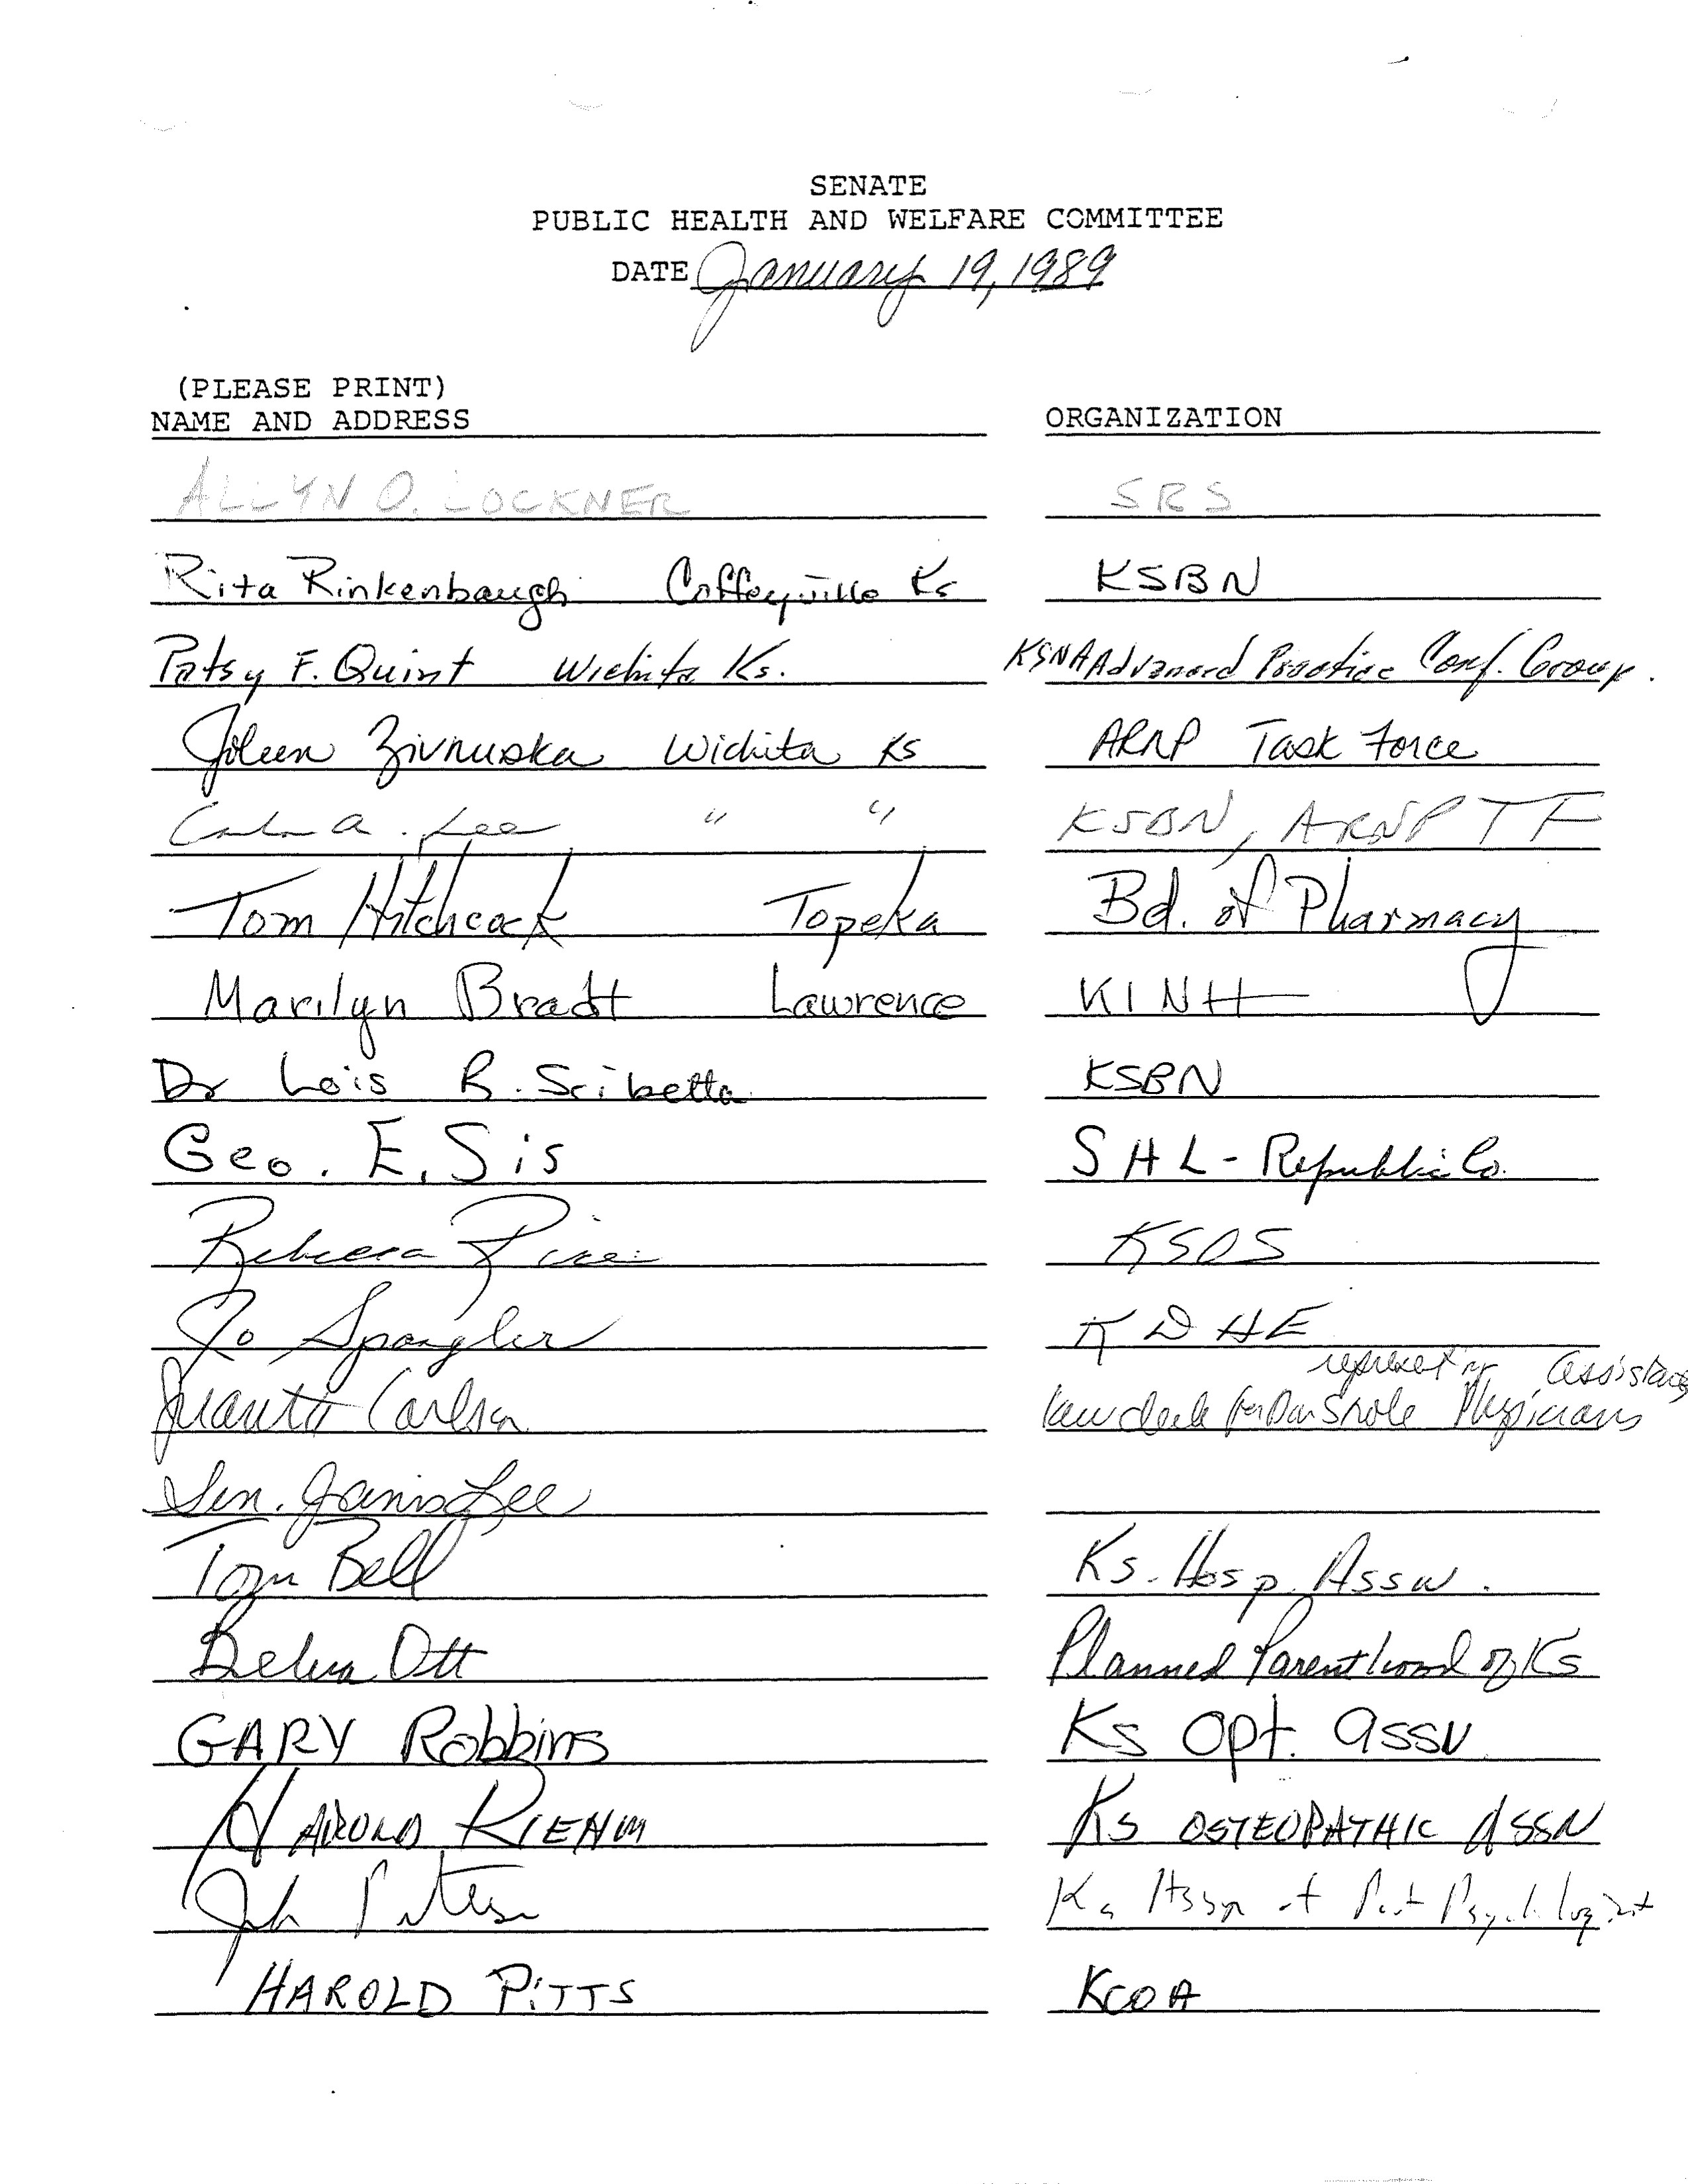 SENATE
PUBLIC HEALTH AND WELFARE COMMITTEE
DATE January 19, 1989
(PLEASE PRINT)
NAME AND ADDRESS ORGANIZATION
ALLYN O. LOCKNER SRS
Rita Rinkenbaugh Coffeyville Ks KSBN
Patsy F. Quint Wichita Ks. KSNA Advanced Practice Conf. Group.
Joleen Zivnuska Wichita KS ARNP Task Force
A. Lee " " KSBN, ARNP TF
Tom Hitchcock Topeka Bd. of Pharmacy
Marilyn Bradt Lawrence KINH
Dr Lois R. Scibetta KSBN
Geo. E. Sis SHL - Republic Co.
Rebecca Rice KSOS
Jo Spangler KDHE
representing assistants
Carlson law clerk for Physicians
Sen. Janis Lee
Tom Bell Ks. Hosp. Assn.
Belva Ott Planned Parenthood of Ks
GARY Robbins Ks Opt. assn
HAROLD RIEHM Ks OSTEOPATHIC ASSN
John Peterson Ks Assn of Psychologist
HAROLD PITTS KCOA